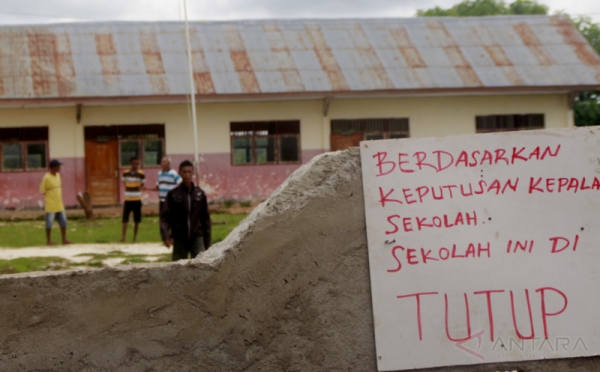 BERDASARKAN
KEPUTUSAN KEPALA
SEKOLAH.
SEKOLAH INI DI
TUTUP
ANTARA